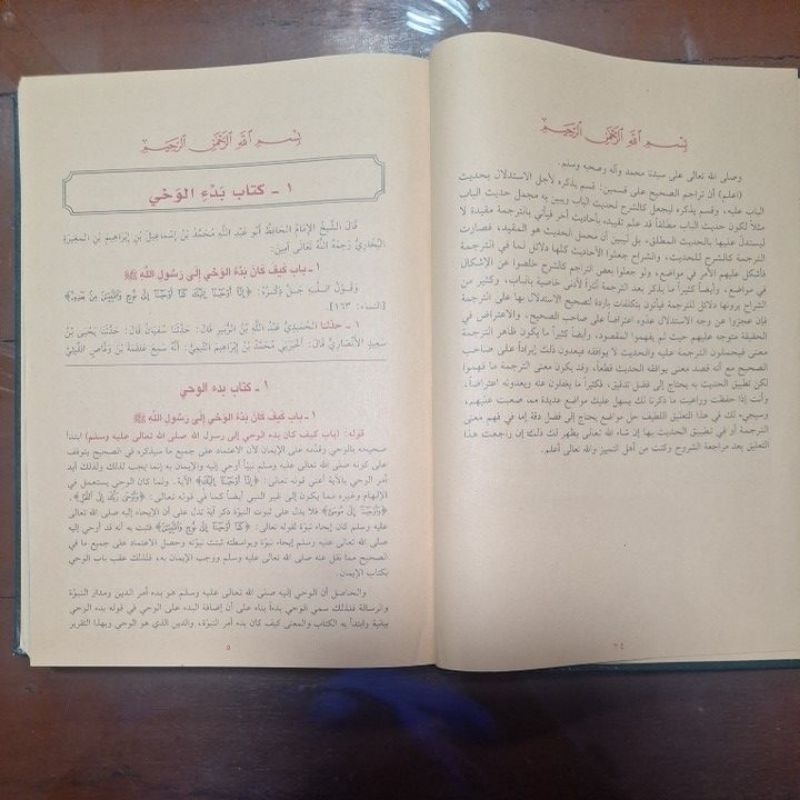 بِسْمِ اللَّهِ الرَّحْمَنِ الرَّحِيمِ
وصلى الله تعالى على سيدنا محمد وآله وصحبه وسلم.
(اعلم) أن تراجم الصحيح على قسمين: قسم يذكره لأجل الاستدلال بحديث
الباب عليه، وقسم يذكره ليجعل كالشرح لحديث الباب ويبين به مجمل حديث الباب
مثلاً لكون حديث الباب مطلقاً قد علم تقييده بأحاديث أخر فيأتي بالترجمة مقيدة لا
ليستدل عليها بالحديث المطلق، بل ليبين أن محمل الحديث هو المقيد، فصارت
الترجمة كالشرح للحديث، والشراح جعلوا الأحاديث كلها دلائل لما في الترجمة
فأشكل عليهم الأمر في مواضع، ولو جعلوا بعض التراجم كالشرح خلصوا عن الإشكال
في مواضع، وأيضاً كثيراً ما يذكر بعد الترجمة آثاراً لأدنى خاصية بالباب، وكثير من
الشراح يرونها دلائل للترجمة فيأتون بتكلفات باردة لتصحيح الاستدلال بها على الترجمة
فإن عجزوا عن وجه الاستدلال عدوه اعتراضاً على صاحب الصحيح، والاعتراض في
الحقيقة متوجه عليهم حيث لم يفهموا المقصود، وأيضاً كثيراً ما يكون ظاهر الترجمة
معنى فيحملون الترجمة عليه والحديث لا يوافقه فيعدون ذلك إيراداً على صاحب
الصحيح مع أنه قصد معنى يوافقه الحديث قطعاً، وقد يكون معنى الترجمة ما فهموا
لكن تطبيق الحديث به يحتاج إلى فضل تدقيق، فكثيراً ما يغفلون عنه ويعدونه اعتراضاً،
وأنت إذا حفظت وراعيت ما ذكرنا لك يسهل عليك مواضع عديدة مما صعبت عليهم،
وسيجيء لك في هذا التعليق اللطيف حل مواضع يحتاج إلى فضل دقة إما في فهم معنى
الترجمة أو في تطبيق الحديث بها إن شاء الله تعالى يظهر لك ذلك إن راجعت هذا
التعليق بعد مراجعة الشروح وكنت من أهل التمييز والله تعالى أعلم.
بِسْمِ اللَّهِ الرَّحْمَنِ الرَّحِيمِ
١ - كتاب بَدْءِ الوَحْي
قَالَ الشَّيْخُ الإِمَامُ الحَافِظُ أَبُو عَبْدِ اللَّهِ مُحَمَّدُ بْنُ إِسْمَاعِيلَ بْنِ إِبْرَاهِيمَ بْنِ المُغِيرَةِ
البُخَارِيُّ رَحِمَهُ اللَّهُ تَعَالَى آمِينَ:
١ - باب كَيْفَ كَانَ بَدْءُ الوَحْيِ إلَى رَسُولِ اللَّهِ ﷺ
وَقَوْلُ اللَّهِ جَلَّ ذِكْرُهُ: ﴿إِنَّا أَوْحَيْنَا إِلَيْكَ كَمَا أَوْحَيْنَا إِلَى نُوحٍ وَالنَّبِيِّينَ مِنْ بَعْدِهِ﴾
[النساء: ١٦٣].
١ - حدثنا الحُمَيْدِيُّ عَبْدُ اللَّهِ بْنُ الزُّبَيْرِ قَالَ: حَدَّثَنَا سُفْيَانُ قَالَ: حَدَّثَنَا يَحْيَى بْنُ
سَعِيدٍ الأَنْصَارِيُّ قَالَ: أَخْبَرَنِي مُحَمَّدُ بْنُ إِبْرَاهِيمَ التَّيْمِيُّ: أَنَّهُ سَمِعَ عَلْقَمَةَ بْنَ وَقَّاصٍ اللَّيْثِيَّ
١ - كتاب بدء الوحي
١ - باب كَيْفَ كَانَ بَدْءُ الوَحْيِ إلَى رَسُولِ اللَّهِ ﷺ
قوله: (باب كيف كان بدء الوحي إلى رسول الله صلى الله تعالى عليه وسلم) ابتدأ
صحيحه بالوحي وقدمه على الإيمان لأن الاعتماد على جميع ما سيذكره في الصحيح يتوقف
على كونه صلى الله تعالى عليه وسلم نبياً أوحي إليه والإيمان به إنما يجب لذلك ولذلك أيد
أمر الوحي بالآية أعني قوله تعالى: ﴿إِنَّا أَوْحَيْنَا إِلَيْكَ﴾ الآية. ولما كان الوحي يستعمل في
الإلهام وغيره مما يكون إلى غير النبي أيضاً كما في قوله تعالى: ﴿وَأَوْحَى رَبُّكَ إِلَى النَّحْلِ﴾،
﴿وَأَوْحَيْنَا إِلَى أُمِّ مُوسَى﴾ فلا يدل على ثبوت النبوة ذكر آية تدل على أن الإيحاء إليه صلى الله تعالى
عليه وسلم إيحاء نبوة لقوله تعالى: ﴿كَمَا أَوْحَيْنَا إِلَى نُوحٍ وَالنَّبِيِّينَ﴾ فثبت به أنه قد أوحي إليه
صلى الله تعالى عليه وسلم إيحاء نبوة وبواسطته ثبتت نبوته وحصل الاعتماد على جميع ما في
الصحيح مما نقل عنه صلى الله تعالى عليه وسلم ووجب الإيمان به، فلذلك عقب باب الوحي
بكتاب الإيمان.
والحاصل أن الوحي إليه صلى الله تعالى عليه وسلم هو بدء أمر الدين ومدار النبوة
والرسالة فلذلك سمي الوحي بدءاً بناء على أن إضافة البدء على الوحي في قوله بدء الوحي
بيانية وابتدأ به الكتاب والمعنى كيف كان بدء أمر النبوة، والدين الذي هو الوحي وبهذا التقرير
٥